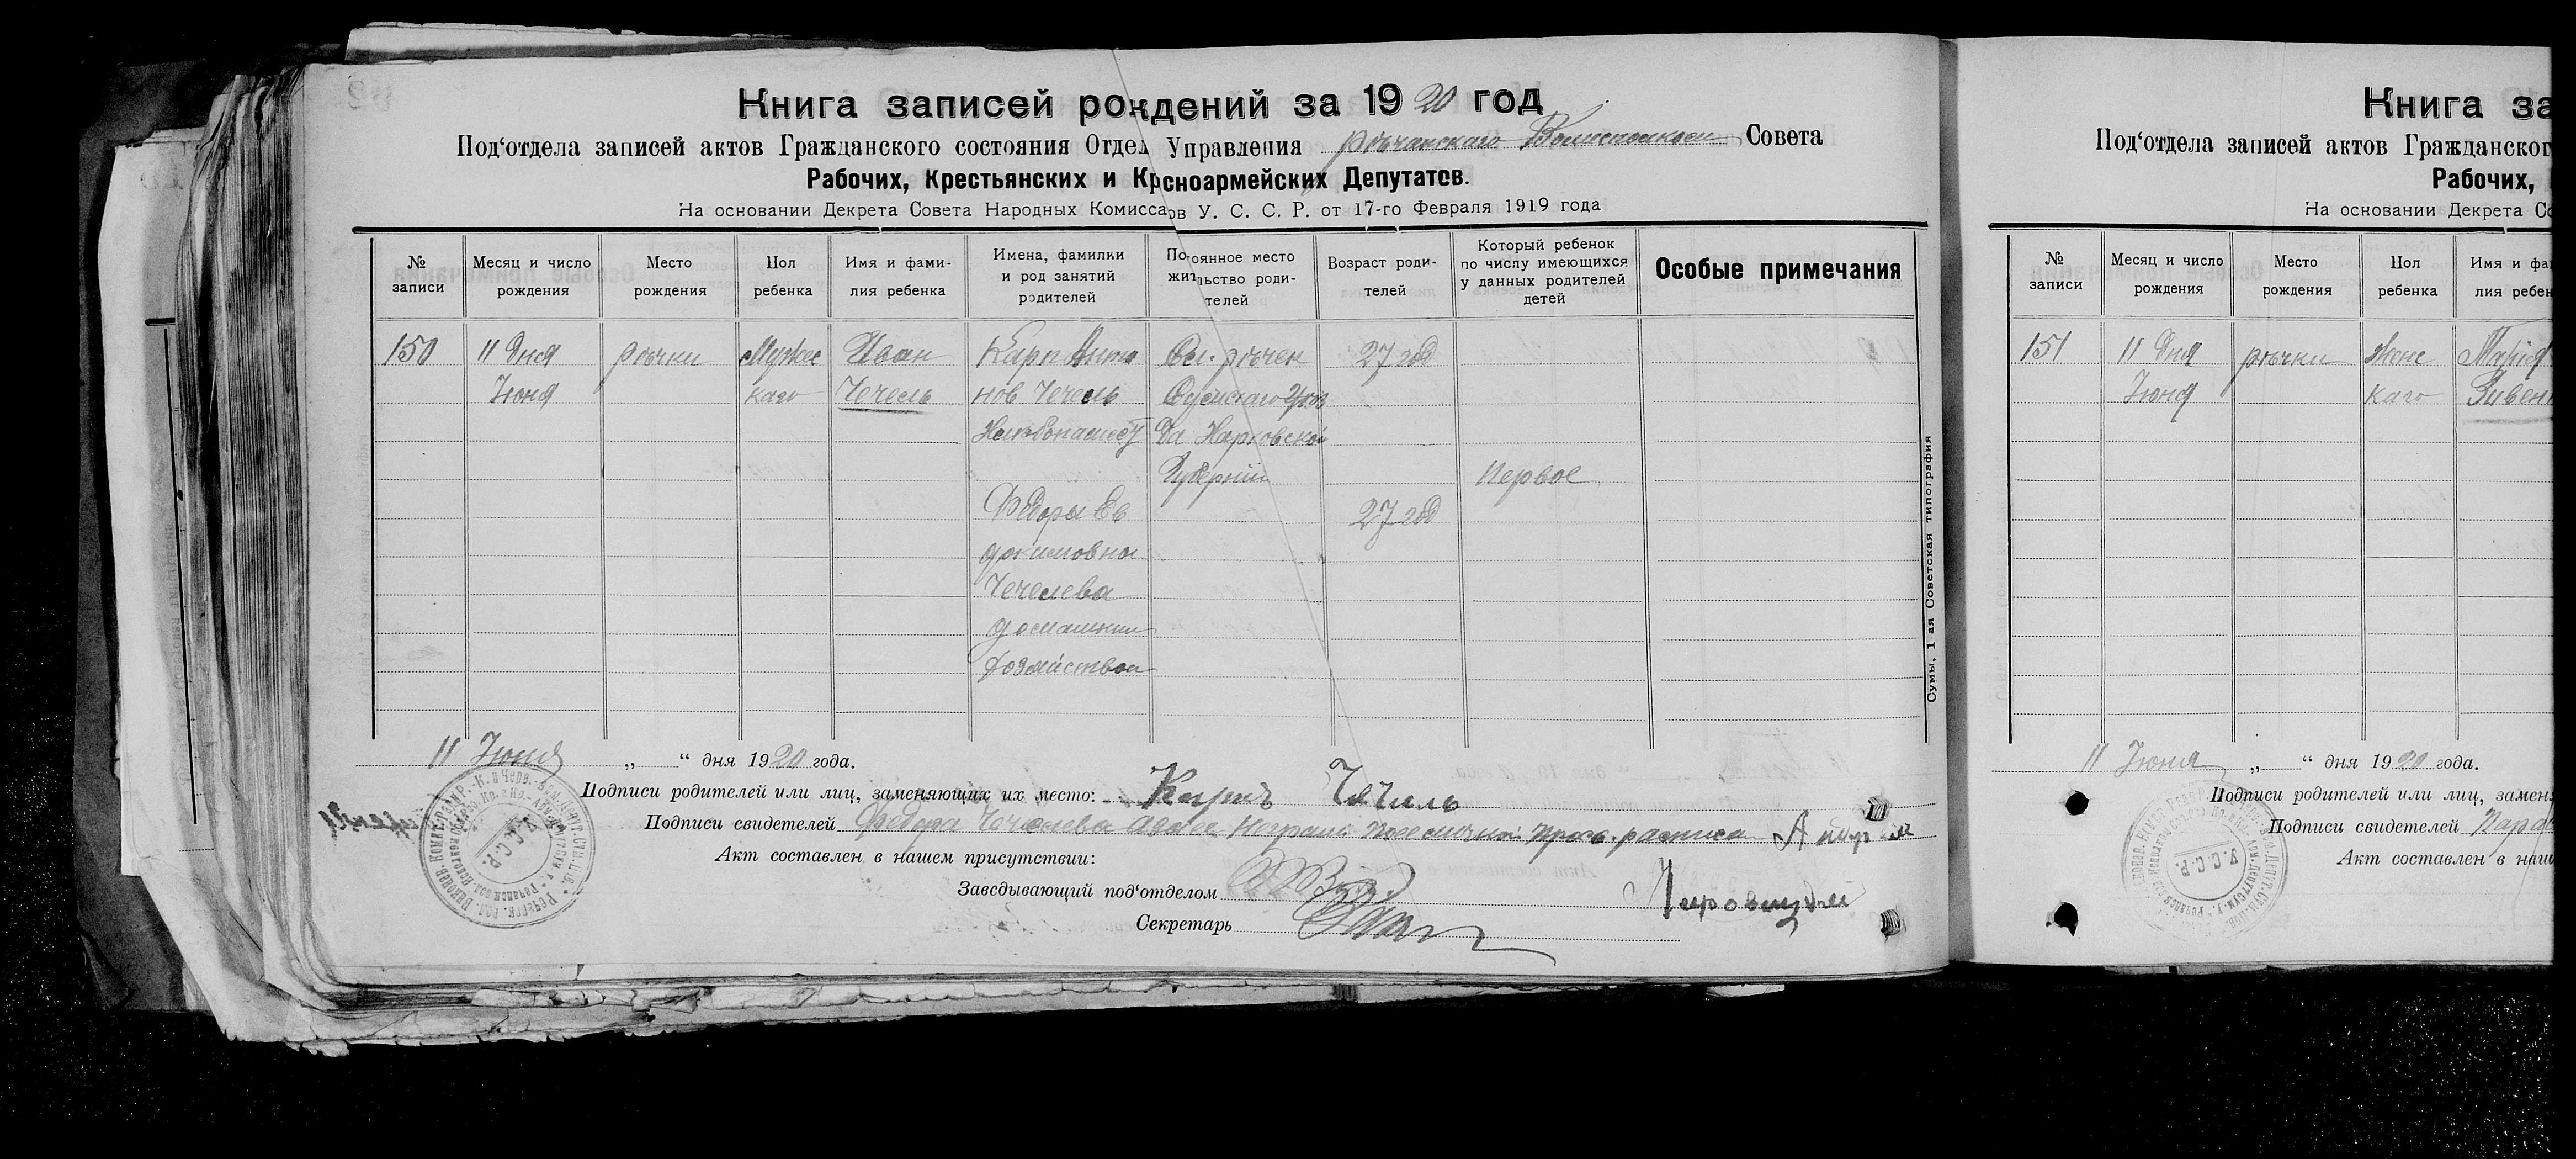 Книга записей рождений за 1920 год
Под‘отдела записей актов Гражданского состояния Отдел Управления Рѣчанскаго Совета
Рабочих, Крестьянских и Красноармейских Депутатов.
На основании Декрета Совета Народных Комиссаров У. С. С. Р. от 17-го Февраля 1919 года
№ записи
Месяц и число рождения
Место рождения
Пол ребенка
Имя и фамилия ребенка
Имена, фамилии и род занятий родителей
Постоянное место жительство родителей
Возраст родителей
Который ребенок по числу имеющихся у данных родителей детей
Особые примечания
150
11 дня
Июня
рѣчки
Мужес
каго
Иван
Чечель
Карп Анто
нов Чечель
Федоры Ев
докимовна
Чечелева
домашним
хозяйством
Сел. рѣчек
Сумскаго Уѣз
да Харьковской
Губернии
27 год
27 год
Первое
Сумы, 1 ая Советская типография
11 Июня „ “ дня 1920 года.
Подписи родителей или лиц, заменяющих их место: Карпъ Чечель
Подписи свидетелей Федора Чечелева
Акт составлен в нашем присутствии:
Заведывающий под‘отделом
Секретарь
У.С.С.Р.
Книга за
Под‘отдела записей актов Гражданског
Рабочих,
На основании Декрета Со
№ записи
Месяц и число рождения
Место рождения
Пол ребенка
Имя и фа
лия ребен
151
11 дня
Июня
рѣчки
Женс
каго
Мария
11 Июня „ “ дня 1920 года.
Подписи родителей или лиц, замен
Подписи свидетелей Пара
Акт составлен в наш
У.С.С.Р.